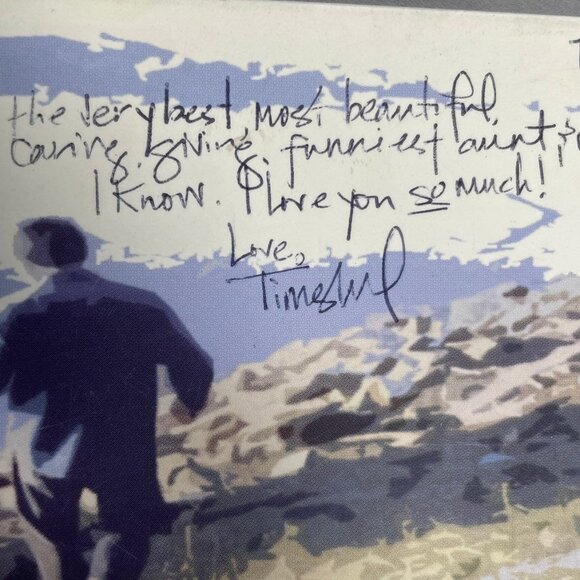 the very best most beautiful,
caring, giving, funniest aunt &
I know. I love you so much!
Love,